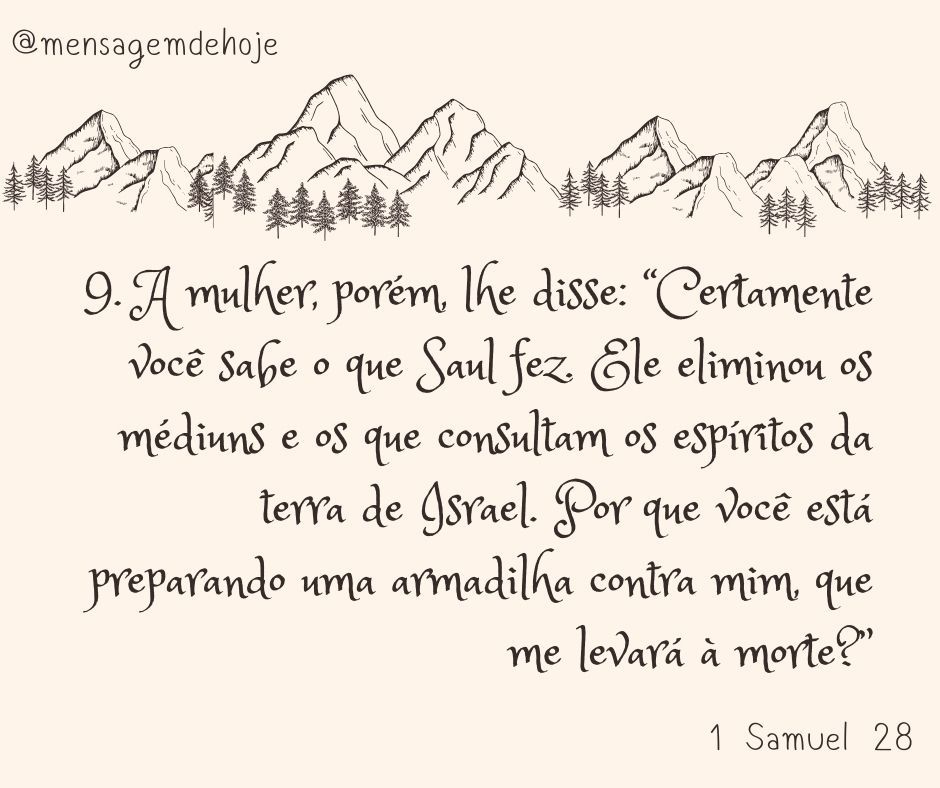 @mensagemdehoje
9. A mulher, porém, lhe disse: “Certamente
você sabe o que Saul fez. Ele eliminou os
médiuns e os que consultam os espíritos da
terra de Israel. Por que você está
preparando uma armadilha contra mim, que
me levará à morte?”
1 Samuel 28